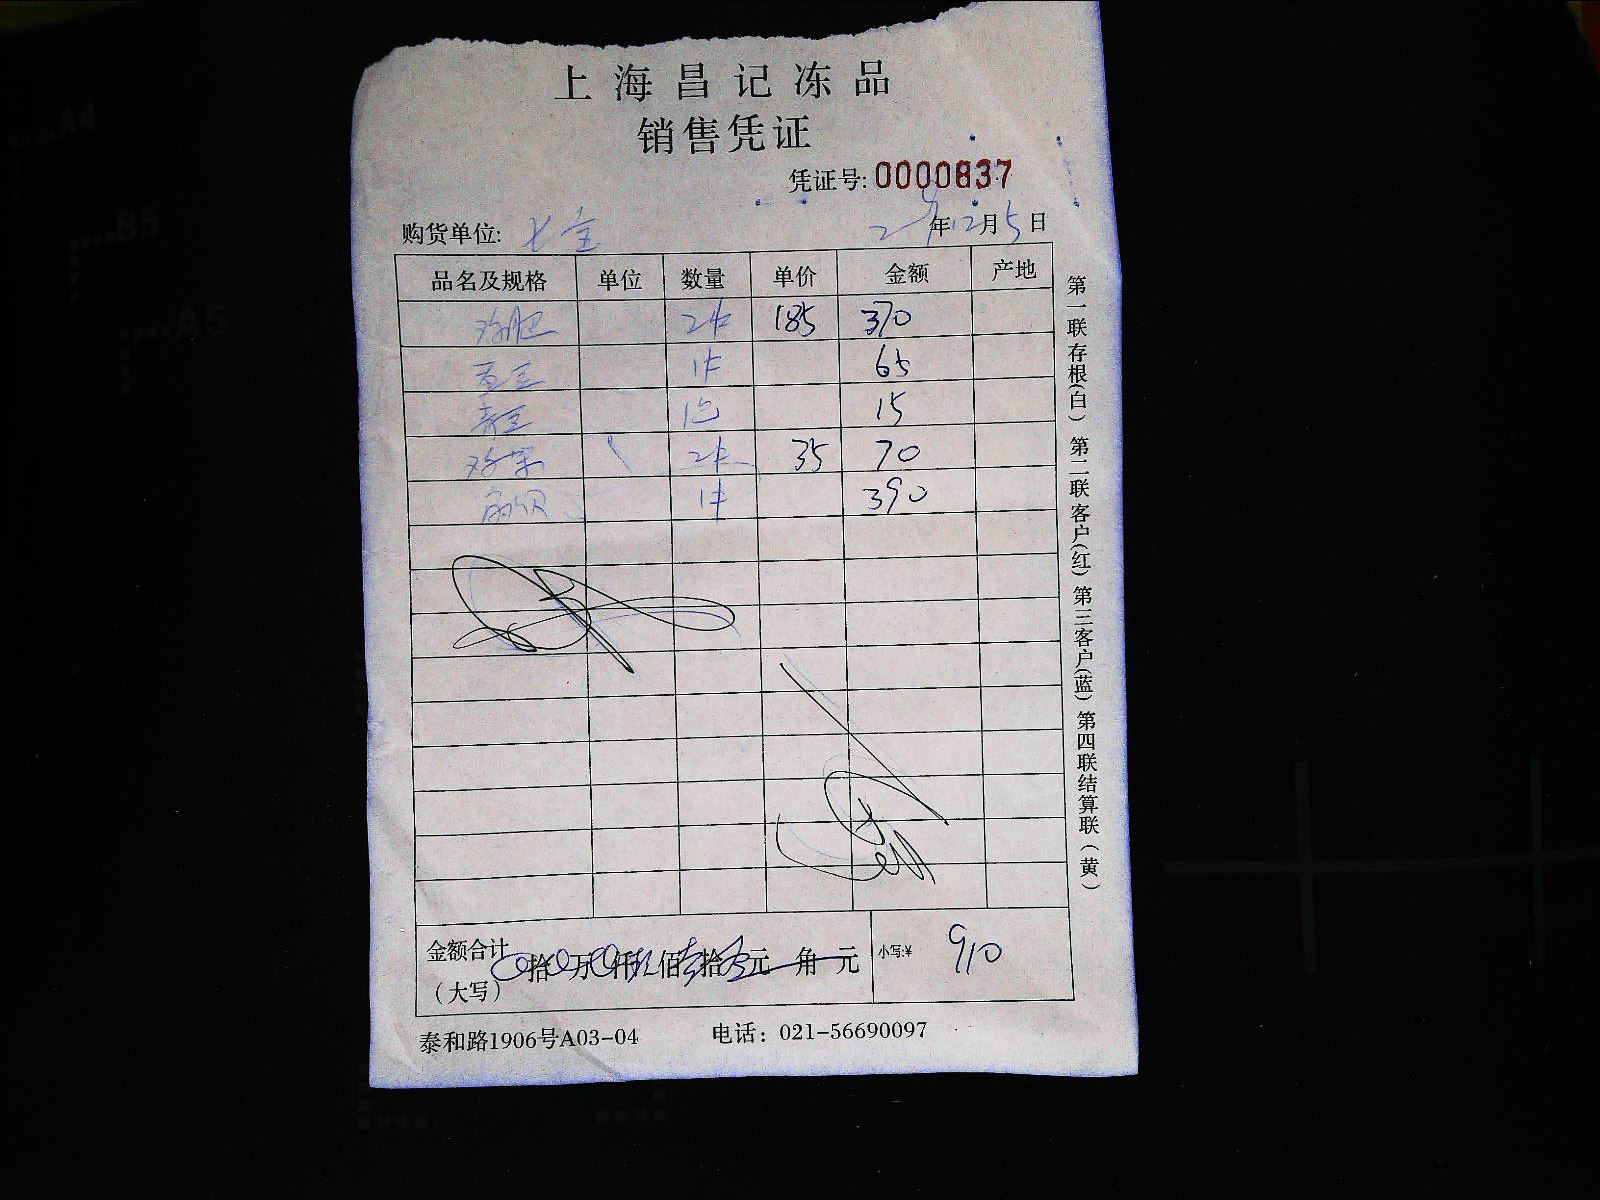 上海昌记冻品
销售凭证
凭证号: 0000837
购货单位: 七宝
年12月5日
品名及规格 单位 数量 单价 金额 产地
2件 185 370
1件 65
青豆 1包 15
2件 35 70
1件 390
金额合计 拾 万 仟 玖佰 壹拾 元 角 元 小写:¥ 910
（大写）
泰和路1906号A03-04 电话：021-56690097
第一联存根(白) 第二联客户(红) 第三客户(蓝) 第四联结算联(黄)
A4
B5
A5